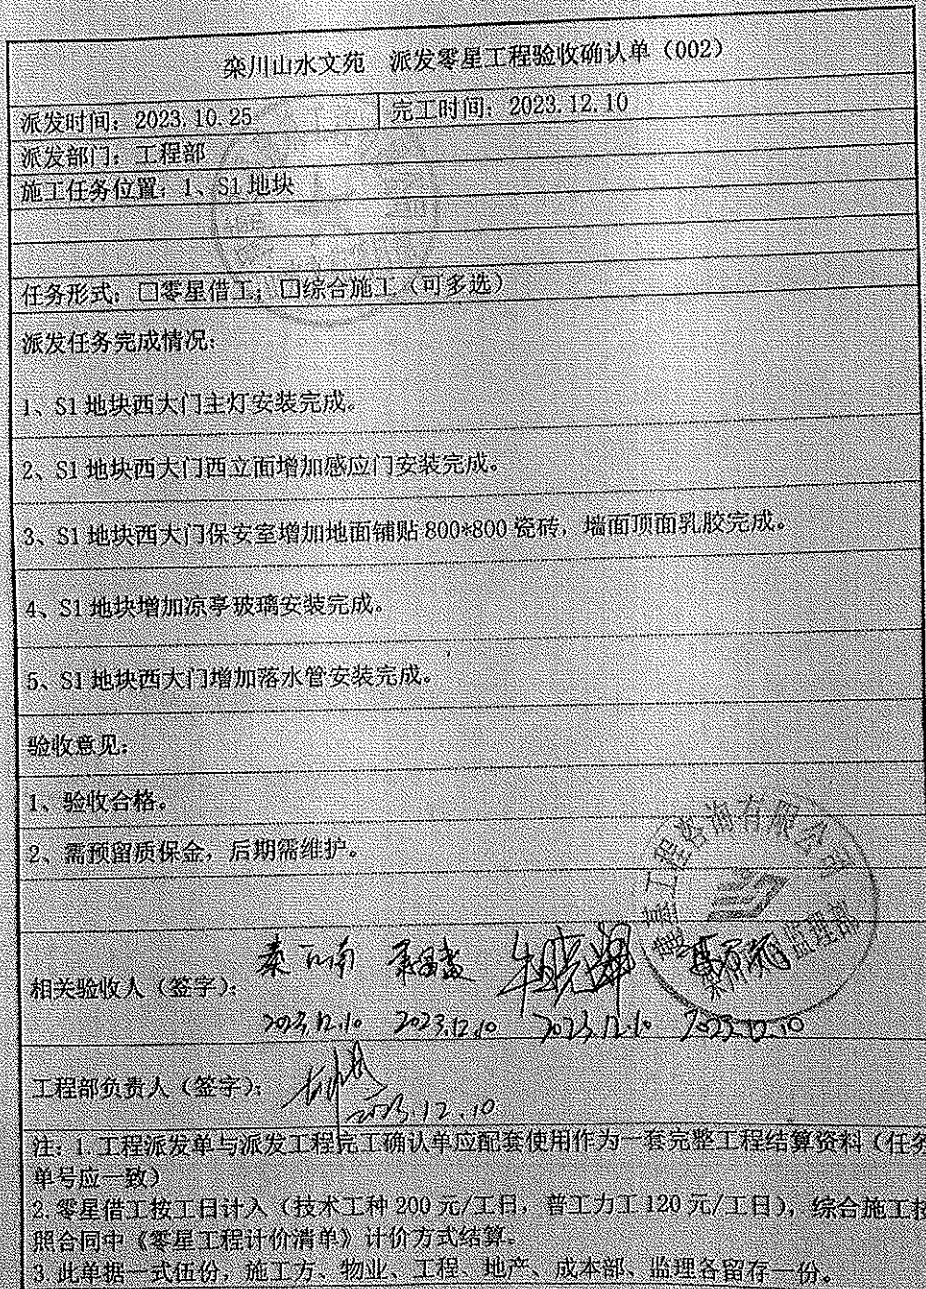 栾川山水文苑 派发零星工程验收确认单（002）
派发时间：2023.10.25 完工时间：2023.12.10
派发部门：工程部
施工任务位置：1、S1 地块
任务形式：口零星借工；口综合施工（可多选）
派发任务完成情况：
1、S1 地块西大门主灯安装完成。
2、S1 地块西大门西立面增加感应门安装完成。
3、S1 地块西大门保安室增加地面铺贴 800*800 瓷砖，墙面顶面乳胶完成。
4、S1 地块增加凉亭玻璃安装完成。
5、S1 地块西大门增加落水管安装完成。
验收意见：
1、验收合格。
2、需预留质保金，后期需维护。
工程咨询有限公司
监理部
相关验收人（签字）：
2023.12.10 2023.12.10 2023.12.10 2023.12.10
工程部负责人（签字）：
2023.12.10
注：1.工程派发单与派发工程完工确认单应配套使用作为一套完整工程结算资料（任务
单号应一致）
2.零星借工按工日计入（技术工种 200 元/工日，普工力工 120 元/工日），综合施工按
照合同中《零星工程计价清单》计价方式结算。
3.此单据一式伍份，施工方、物业、工程、地产、成本部、监理各留存一份。